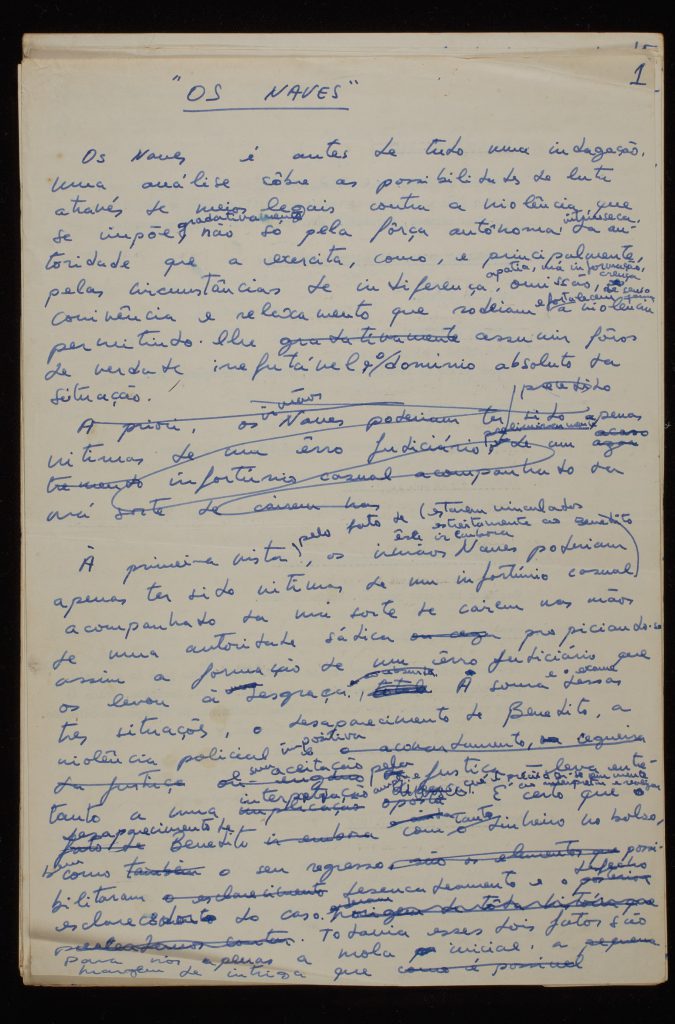 1
"OS NAVES"
Os Naves é antes de tudo uma indagação,
uma análise sôbre as possibilidades de luta
através de meios legais contra a violência que
gradativamente intrínseca
se impõe, não só pela fôrça autônoma da au-
toridade que a exercita, como, e principalmente,
apatia, má informação, crença
pelas circunstâncias de indiferença, omissão,
e fortalecem
conivência e relaxamento que rodeiam a violência
permitindo-lhe gradativamente assumir fôros
de verdade irrefutável e o domínio absoluto da
situação.
irmãos
A priori, os Naves poderiam ter sido apenas
preliminarmente
vítimas de um êrro judiciário, de um
tremendo infortúnio casual acompanhado da
má sorte de cairem nas
pelo fato de (estarem vinculados
estreitamente ao Benedito
À primeira vista, os irmãos Naves poderiam
apenas ter sido vítimas de um infortúnio casual
acompanhado da má sorte de cairem nas mãos
de uma autoridade sádica ou cega propiciando-se
assim a formação de um êrro judiciário que
absurda e o exame
os levou à desgraça. A soma dessas
três situações, o desaparecimento de Benedito, a
positiva
violência policial e o acovardamento, a cegueira
sua aceitação pela
da justiça ou engano e justiça leva entre-
interpretação
tanto a uma implicação oposta. É certo que o
desaparecimento de
fato de Benedito ir embora com o dinheiro no bolso,
bem
como também o seu regresso, são os elementos que possi-
desfecho
bilitaram o esclarecimento desencadeamento e o posterior
esclarecimento do caso. origem de tôda história que
pretendemos contar. Todavia esses dois fatos são
para nós apenas a mola inicial, a pequena
margem de intriga que como é possível